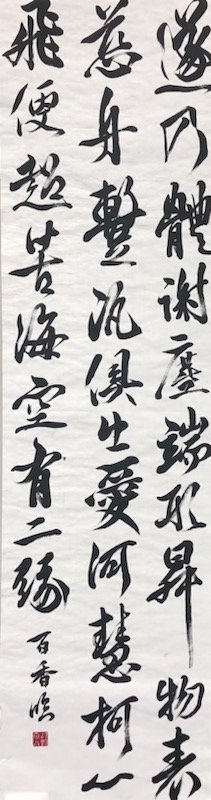 遂乃體謝塵端形昇物表
慈舟蹔汎俱出愛河慧柯一
飛便超苦海空有二緣
百香臨